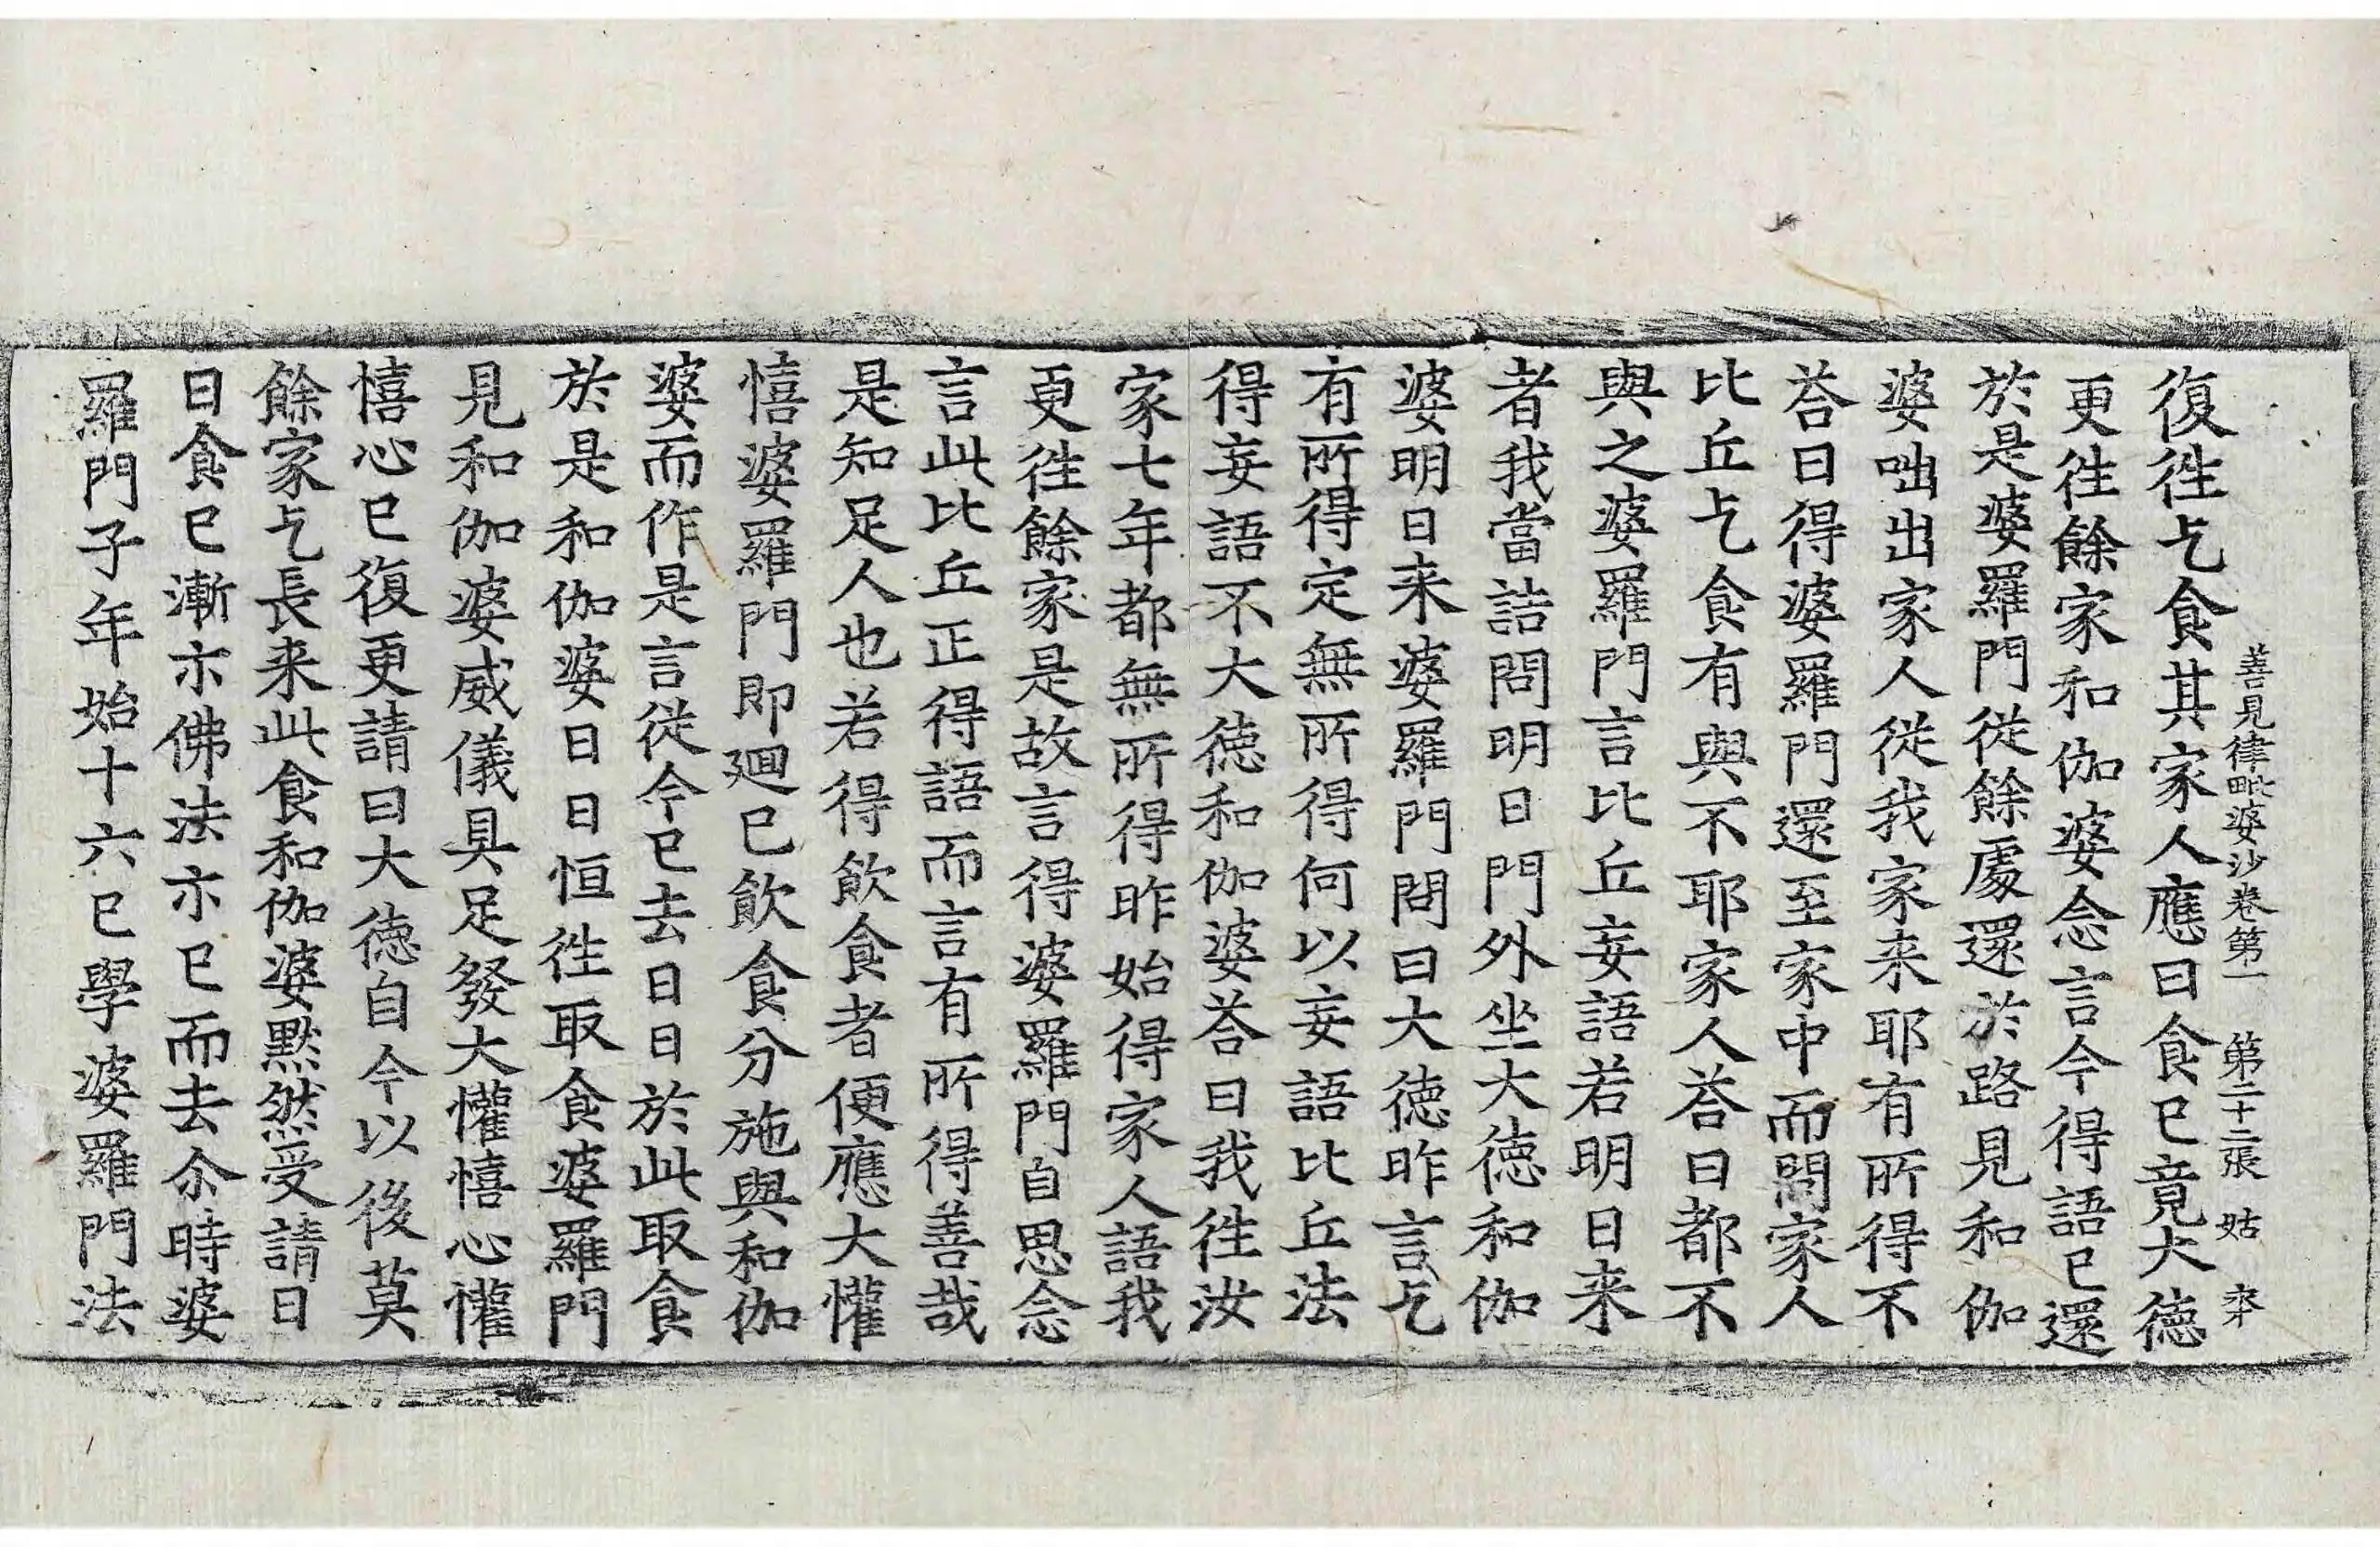 善見律毗婆沙卷第一　第二十二張　姑
復徃乞食其家人應曰食已竟大徳
更徃餘家和伽婆念言今得語已還
於是婆羅門従餘處還於路見和伽
婆咄出家人従我家来耶有所得不
荅曰得婆羅門還至家中而問家人
比丘乞食有與不耶家人荅曰都不
與之婆羅門言比丘妄語若明日来
者我當詰問明日門外坐大徳和伽
婆明日来婆羅門問曰大徳昨言乞
有所得定無所得何以妄語比丘法
得妄語不大徳和伽婆荅曰我徃汝
家七年都無所得昨始得家人語我
更徃餘家是故言得婆羅門自思念
言此比丘正得語而言有所得善哉
是知足人也若得飲食者便應大懽
憘婆羅門即廻已飲食分施與和伽
婆而作是言従今已去日日於此取食
於是和伽婆日日恒徃取食婆羅門
見和伽婆威儀具足發大懽憘心懽
憘心已復更請曰大徳自今以後莫
餘家乞長来此食和伽婆黙然受請日
日食已漸示佛法示已而去尒時婆
羅門子年始十六已學婆羅門法